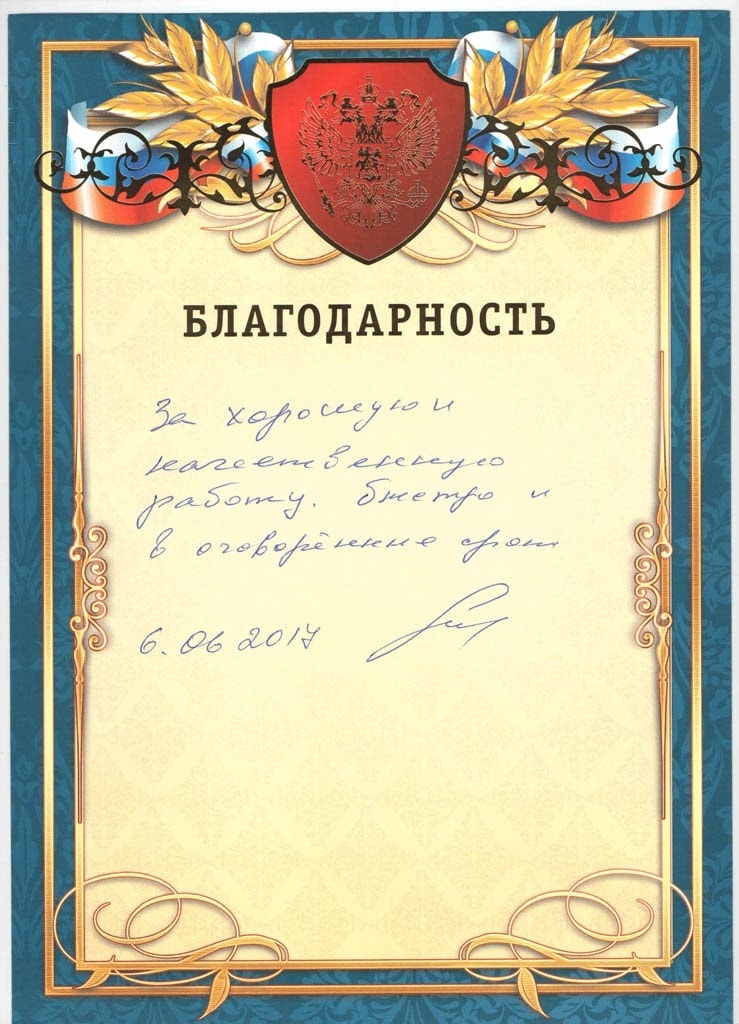 БЛАГОДАРНОСТЬ
За хорошую и
качественную
работу. быстро и
в оговорённые сроки
6.06 2017